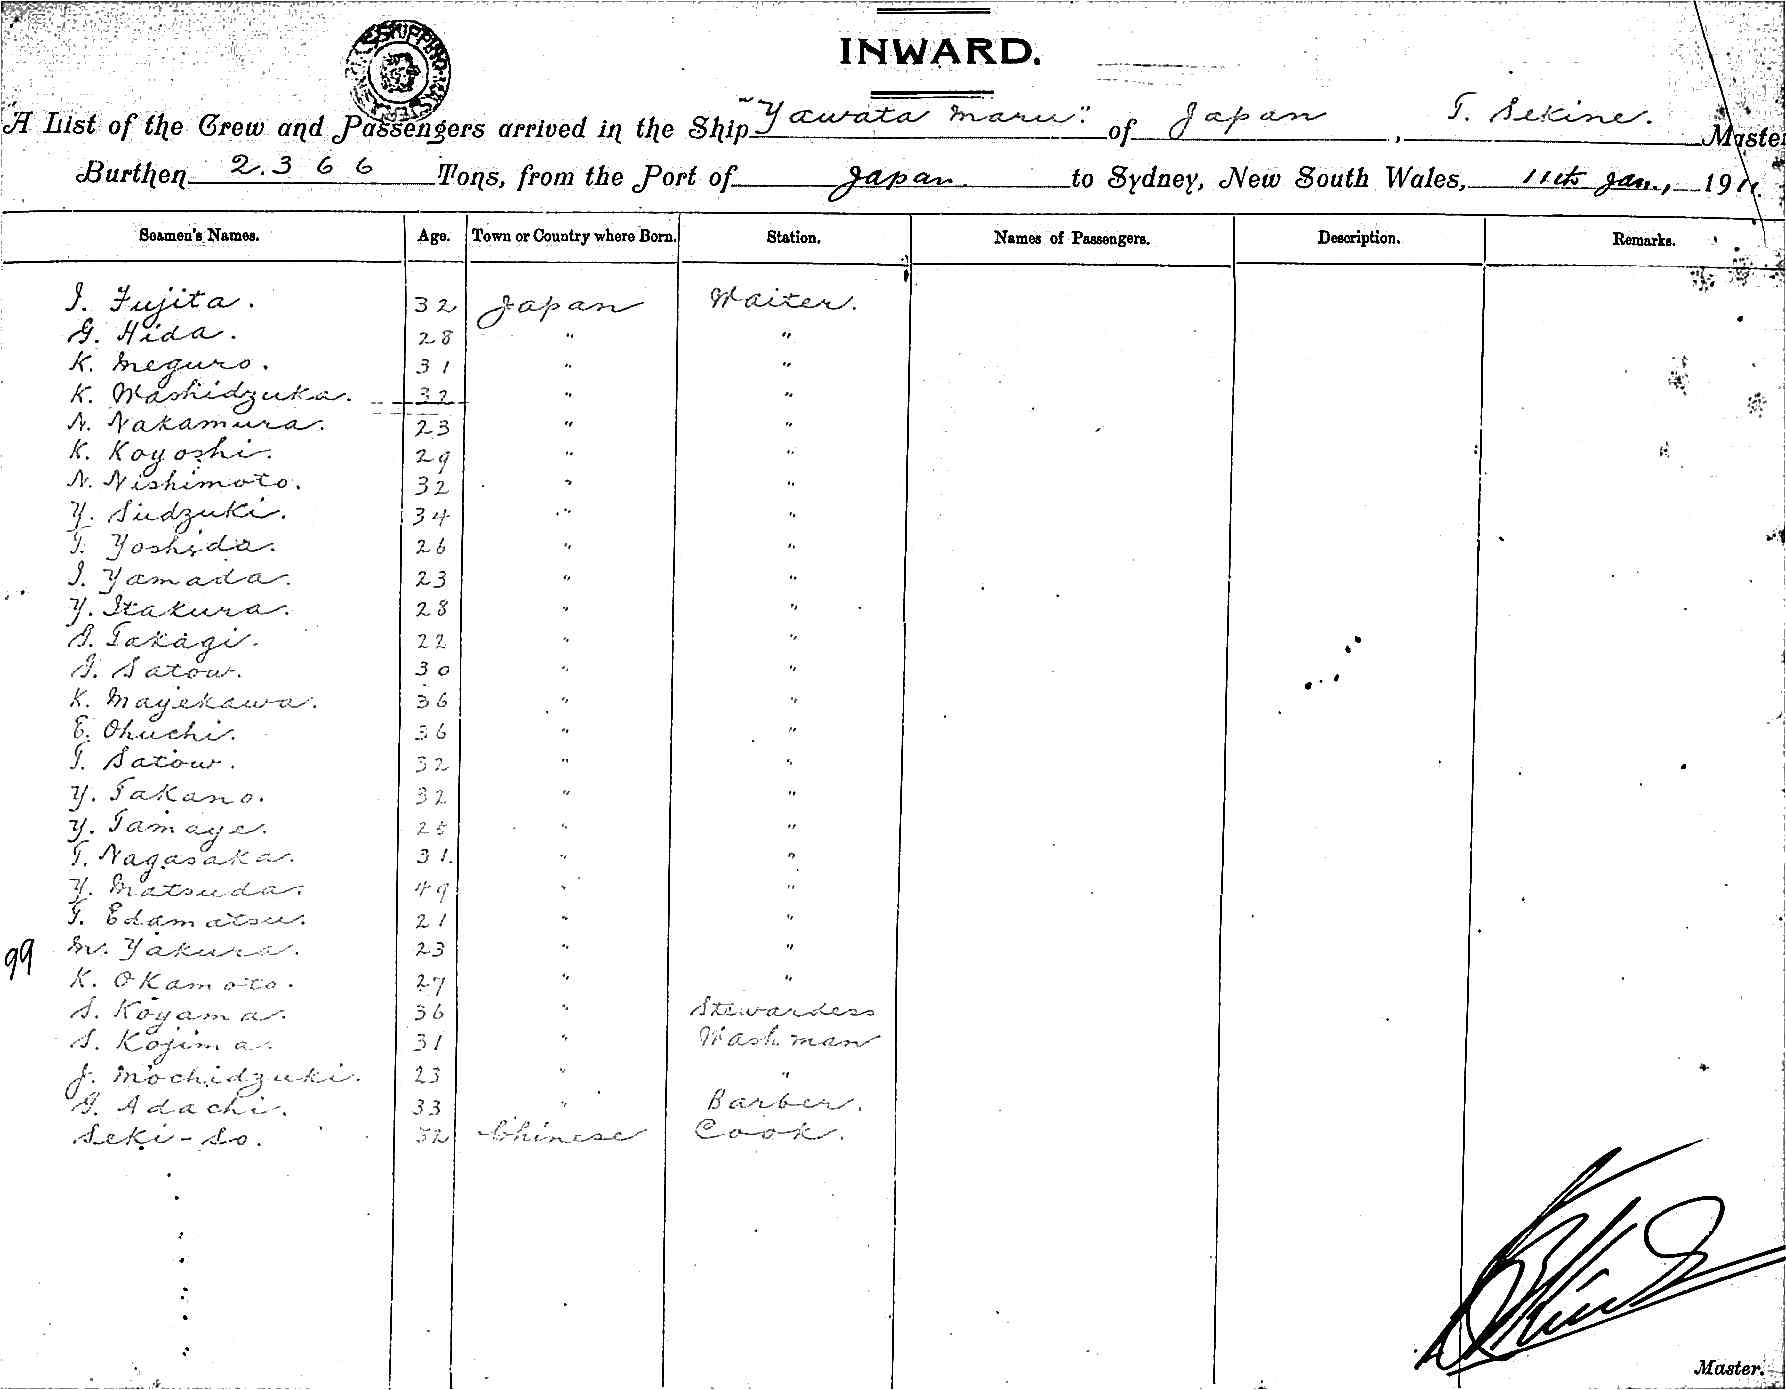 INWARD.
A List of the Crew and Passengers arrived in the Ship "Yawata Maru." of Japan, T. Sekine. Master
Burthen 2.366 Tons, from the Port of Japan. to Sydney, New South Wales, 11th Jan., 1911.
Seamen's Names. Age. Town or Country where Born. Station. Names of Passengers. Description. Remarks.
I. Fujita. 32 Japan Waiter.
G. Hida. 28 " "
K. Meguro. 31 " "
K. Washidzuka. 32 " "
N. Nakamura. 23 " "
K. Koyoshi. 29 " "
N. Nishimoto. 32 " "
Y. Sudzuki. 34 " "
T. Yoshida. 26 " "
I. Yamada. 23 " "
Y. Itakura. 28 " "
S. Takagi. 22 " "
Satow. 30 " "
K. Mayekawa. 36 " "
E. Ohuchi. 36 " "
T. Satow. 32 " "
Y. Takano. 32 " "
Y. Tamaye. 25 " "
T. Nagasaka. 31. " "
Y. Matsuda. 49 " "
T. Edamatsu. 21 " "
99 M. Yakura. 23 " "
K. Okamoto. 27 " "
S. Koyama. 36 " Stewardess
S. Kojima. 31 " Washman
J. Mochidzuki. 23 " "
G. Adachi. 33 " Barber.
Seki-So. 32 Chinese Cook.
Master.